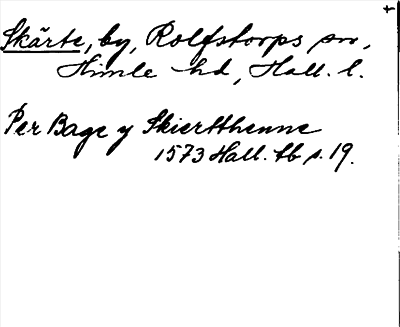 Skärte, by, Rolfstorps sn,
Himle hd, Hall. l.
Per Bage y Skiertthenne
1573 Hall. tb s. 19.